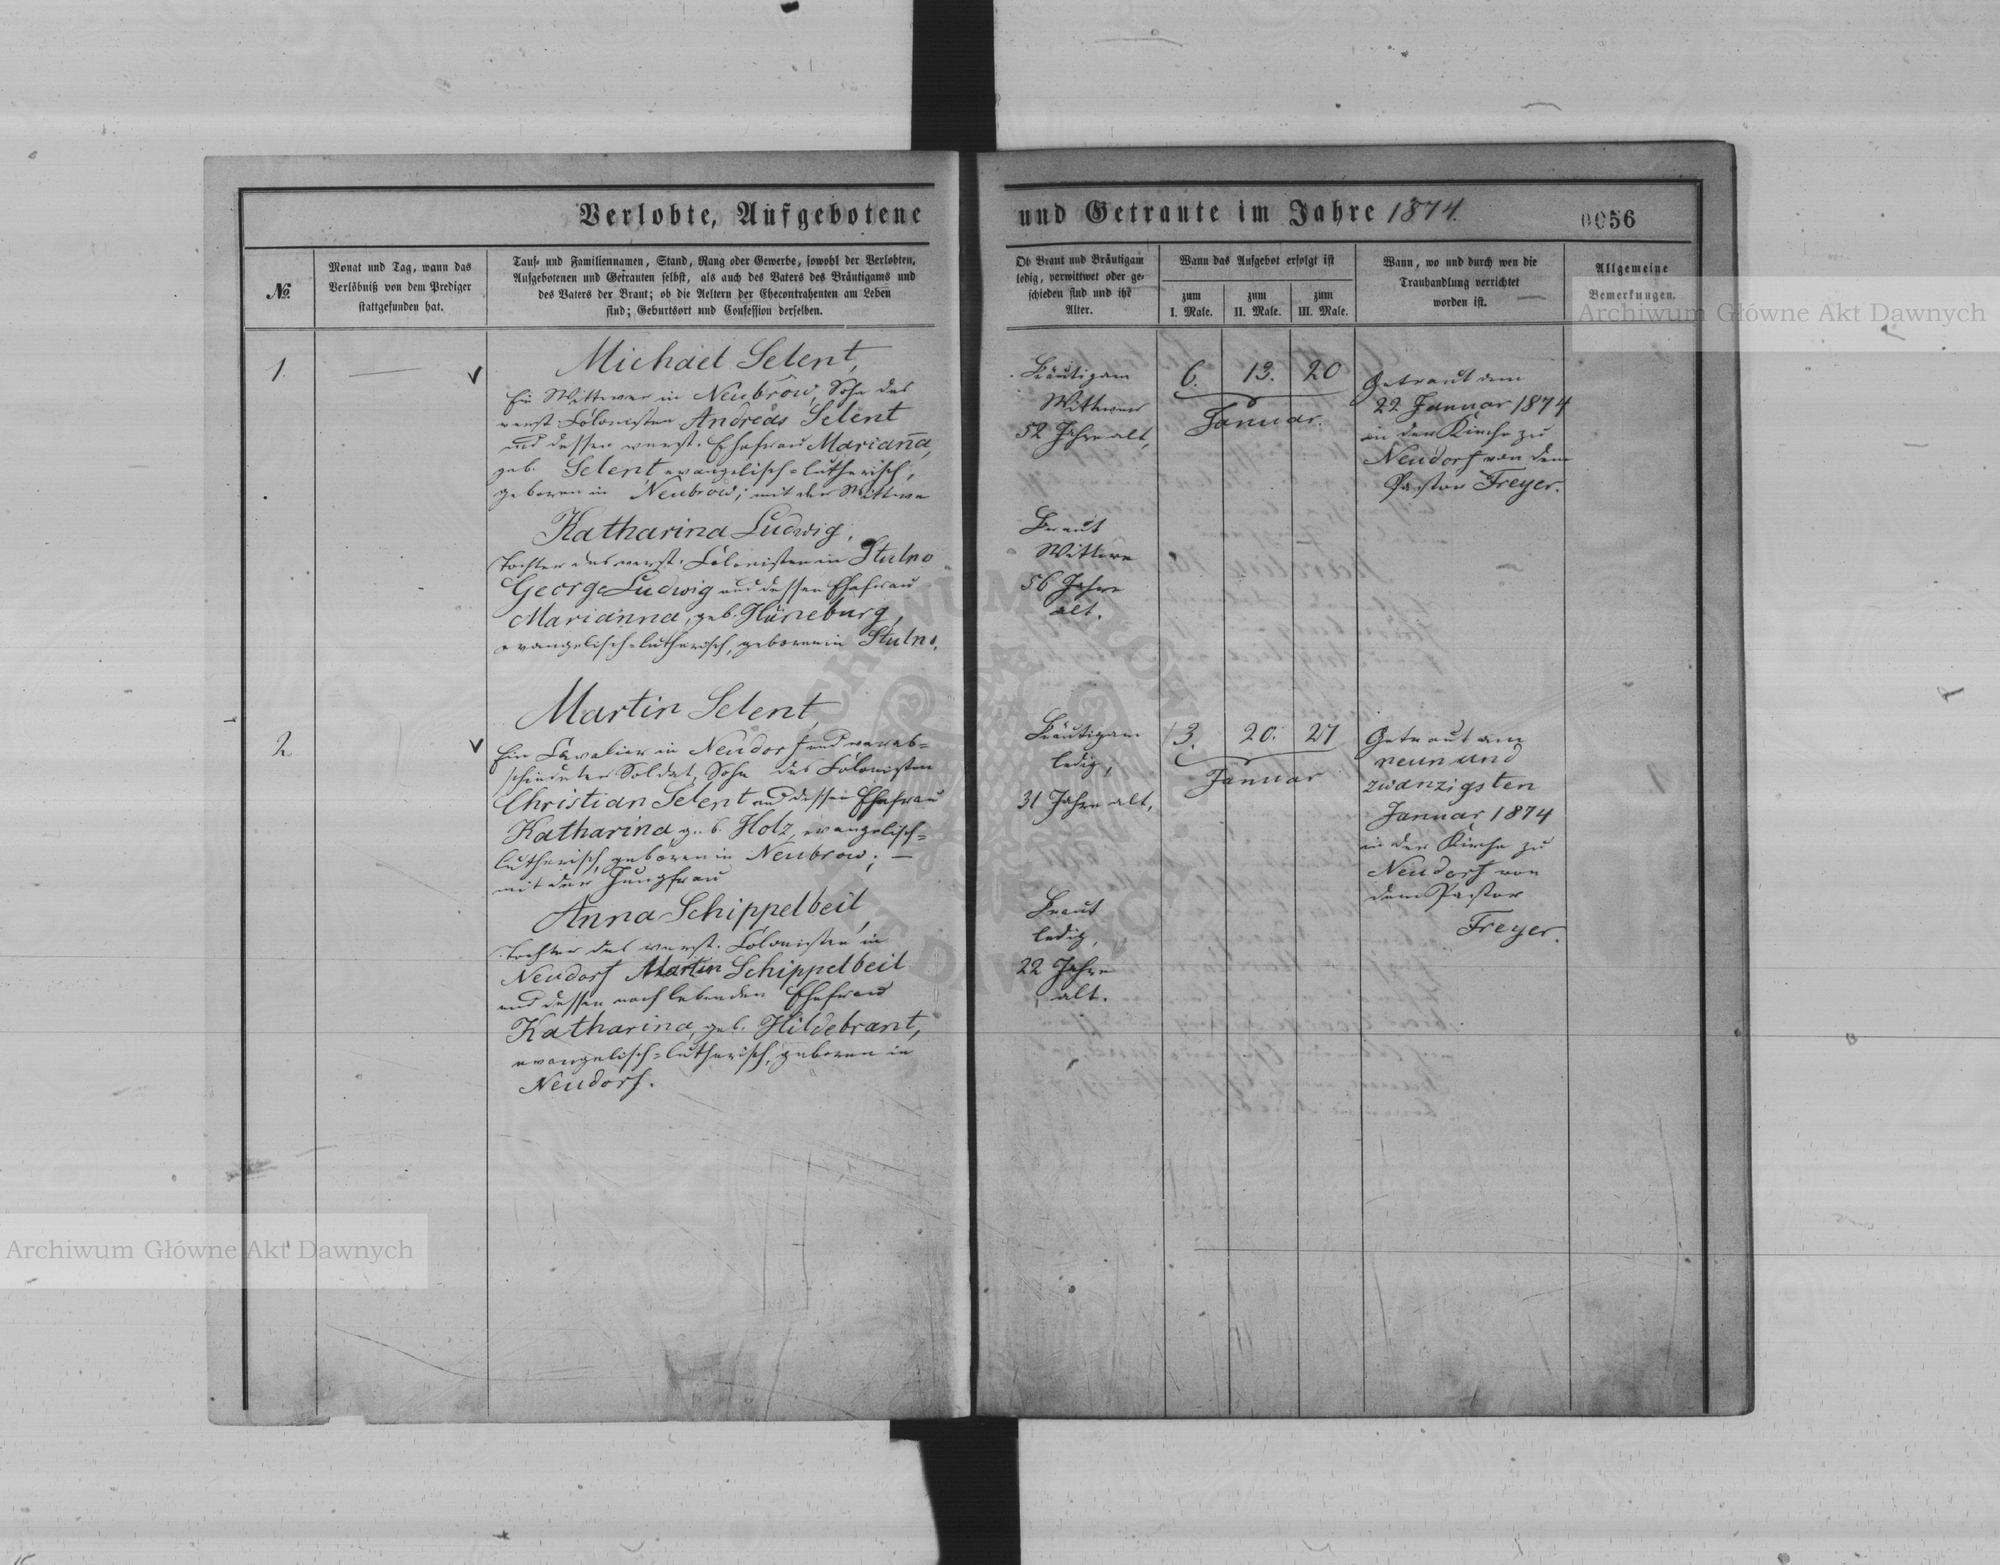 Verlobte, Aufgebotene und Getraute im Jahre 1874.
0056
№
Monat und Tag, wann das
Verlöbniß von dem Prediger
stattgefunden hat.
Tauf- und Familiennamen, Stand, Rang oder Gewerbe, sowohl der Verlobten,
Aufgebotenen und Getrauten selbst, als auch des Vaters des Bräutigams und
des Vaters der Braut; ob die Aeltern der Ehecontrahenten am Leben
sind; Geburtsort und Confession derselben.
Ob Braut und Bräutigam
ledig, verwittwet oder ge-
schieden sind und ihr
Alter.
Wann das Aufgebot erfolgt ist
zum
I. Male.
zum
II. Male.
zum
III. Male.
Wann, wo und durch wen die
Trauhandlung verrichtet
worden ist.
Allgemeine
Bemerkungen.
1.
Michael Selent,
Ein Wittwer in Neubrow, Sohn des
verst. Colonisten Andreas Selent
und dessen verst. Ehefrau Marianna,
geb. Selent, evangelisch=lutherisch,
geboren in Neubrow; mit der Wittwe
Katharina Ludwig,
Tochter des verst. Colonisten in Stulno
George Ludwig und dessen Ehefrau
Marianna, geb. Hüneburg,
evangelisch=lutherisch, geboren in Stulno.
Bräutigam
Wittwer
52 Jahre alt,
Braut
Wittwe
56 Jahre
alt.
6. 13. 20
Januar.
Getraut den
22 Januar 1874
in der Kirche zu
Neudorf von dem
Pastor Freyer.
2
Martin Selent,
Ein Cavalier in Neudorf und verab=
schiedeter Soldat, Sohn des Colonisten
Christian Selent und dessen Ehefrau
Katharina geb. Holz, evangelisch=
lutherisch, geboren in Neubrow; —
mit der Jungfrau
Anna Schippelbeil,
Tochter des verst. Colonisten in
Neudorf Martin Schippelbeil
und dessen noch lebenden Ehefrau
Katharina, geb. Hildebrant,
evangelisch=lutherisch, geboren in
Neudorf.
Bräutigam
ledig,
31 Jahre alt,
Braut
ledig,
22 Jahre
alt.
13. 20. 27
Januar
Getraut am
neun und
zwanzigsten
Januar 1874
in der Kirche zu
Neudorf von
dem Pastor
Freyer.
Archiwum Główne Akt Dawnych
Archiwum Główne Akt Dawnych